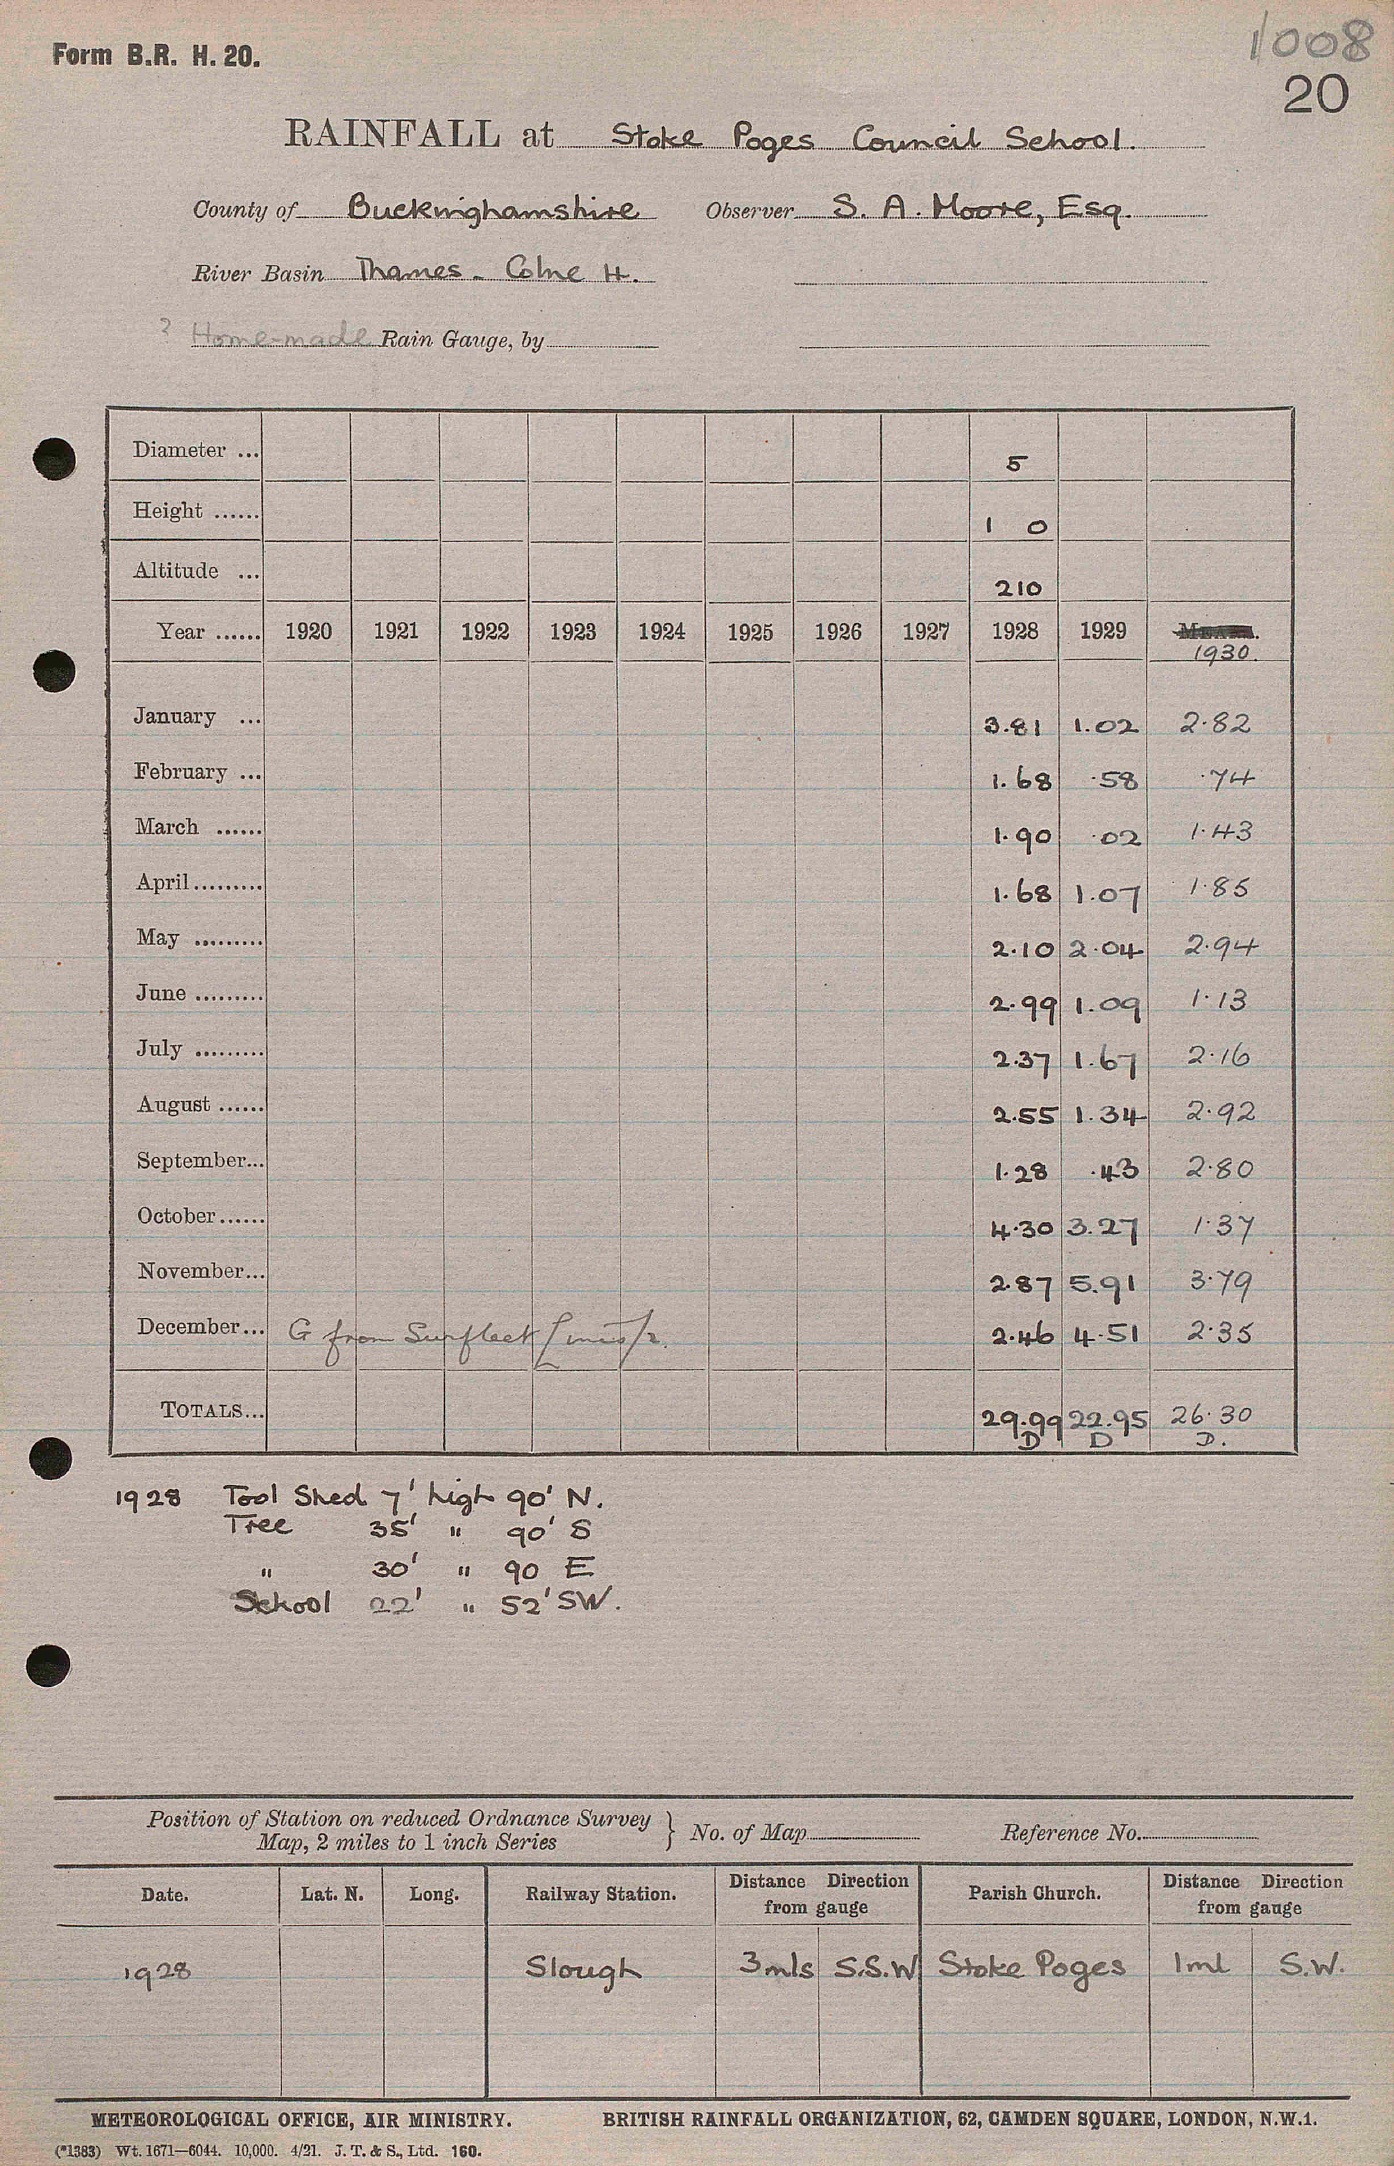 1008
Form B.R. H. 20.
20
RAINFALL at Stoke Poges Council School.
County of Buckinghamshire Observer S. A. Moore, Esq.
River Basin Thames - Colne H.
? Home-made Rain Gauge, by
Diameter ... 5
Height ...... 1 0
Altitude ... 210
Year ...... 1920 1921 1922 1923 1924 1925 1926 1927 1928 1929
1930
January ... 3.81 1.02 2.82
February ... 1.68 .58 .74
March ...... 1.90 .02 1.43
April ......... 1.68 1.07 1.85
May ......... 2.10 2.04 2.94
June ......... 2.99 1.09 1.13
July ......... 2.37 1.67 2.16
August ...... 2.55 1.34 2.92
September... 1.28 .43 2.80
October ...... 4.30 3.27 1.37
November... 2.87 5.91 3.79
December... G from Surfleet 2.46 4.51 2.35
TOTALS... 29.99 22.95 26.30
D D D.
1928 Tool Shed 7' high 90' N.
Tree 35' " 90' S
" 30' " 90 E
School 22' " 52' SW.
Position of Station on reduced Ordnance Survey
Map, 2 miles to 1 inch Series } No. of Map Reference No.
Date. Lat. N. Long. Railway Station. Distance Direction from gauge Parish Church. Distance Direction from gauge
1928 Slough 3 mls S.S.W Stoke Poges 1 ml S.W.
METEOROLOGICAL OFFICE, AIR MINISTRY. BRITISH RAINFALL ORGANIZATION, 62, CAMDEN SQUARE, LONDON, N.W.1.
(*1383) Wt. 1671—6044. 10,000. 4/21. J. T. & S., Ltd. 160.